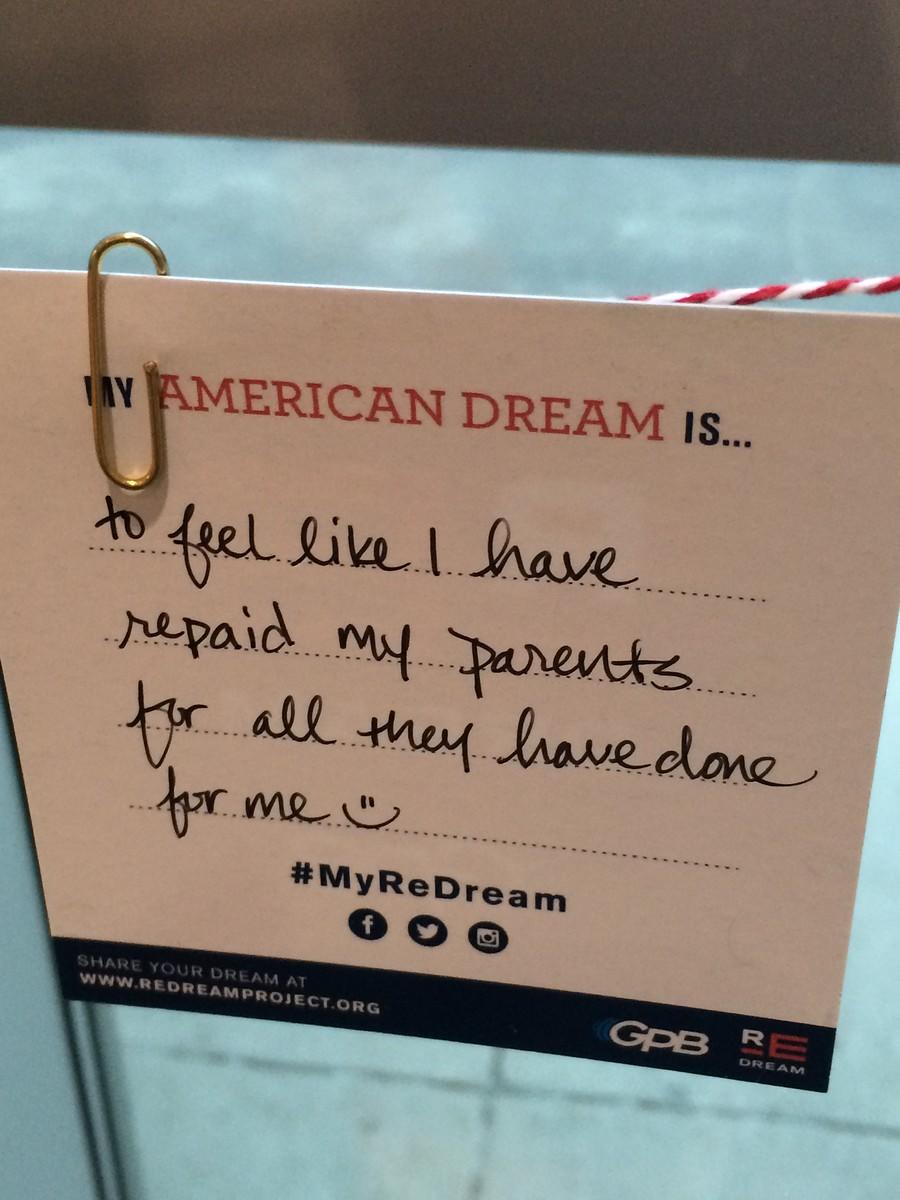 MY AMERICAN DREAM IS...
to feel like I have
repaid my parents
for all they have done
for me
#MyReDream
SHARE YOUR DREAM AT
WWW.REDREAMPROJECT.ORG
GPB
RE
DREAM